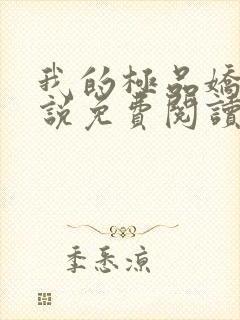 我的極品嬌
說免費閱讀
季悉涼